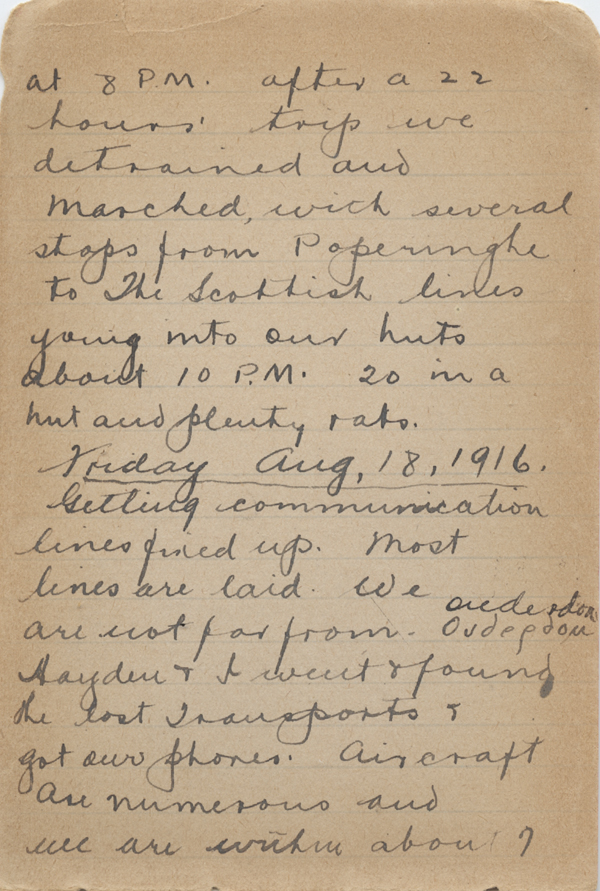 at 8 P.M. after a 22
hours' trip we
detrained and
marched, with several
stops from Poperinghe
to The Scottish lines
going into our huts
about 10 P.M. 20 in a
hut and plenty rats.
Friday Aug, 18, 1916.
Getting communication
lines fixed up. Most
lines are laid. We
ouderdon
are not far from. Ovdegdon
Hayden & I went & found
the lost Transports &
got our phones. Aircraft
are numerous and
we are within about 7